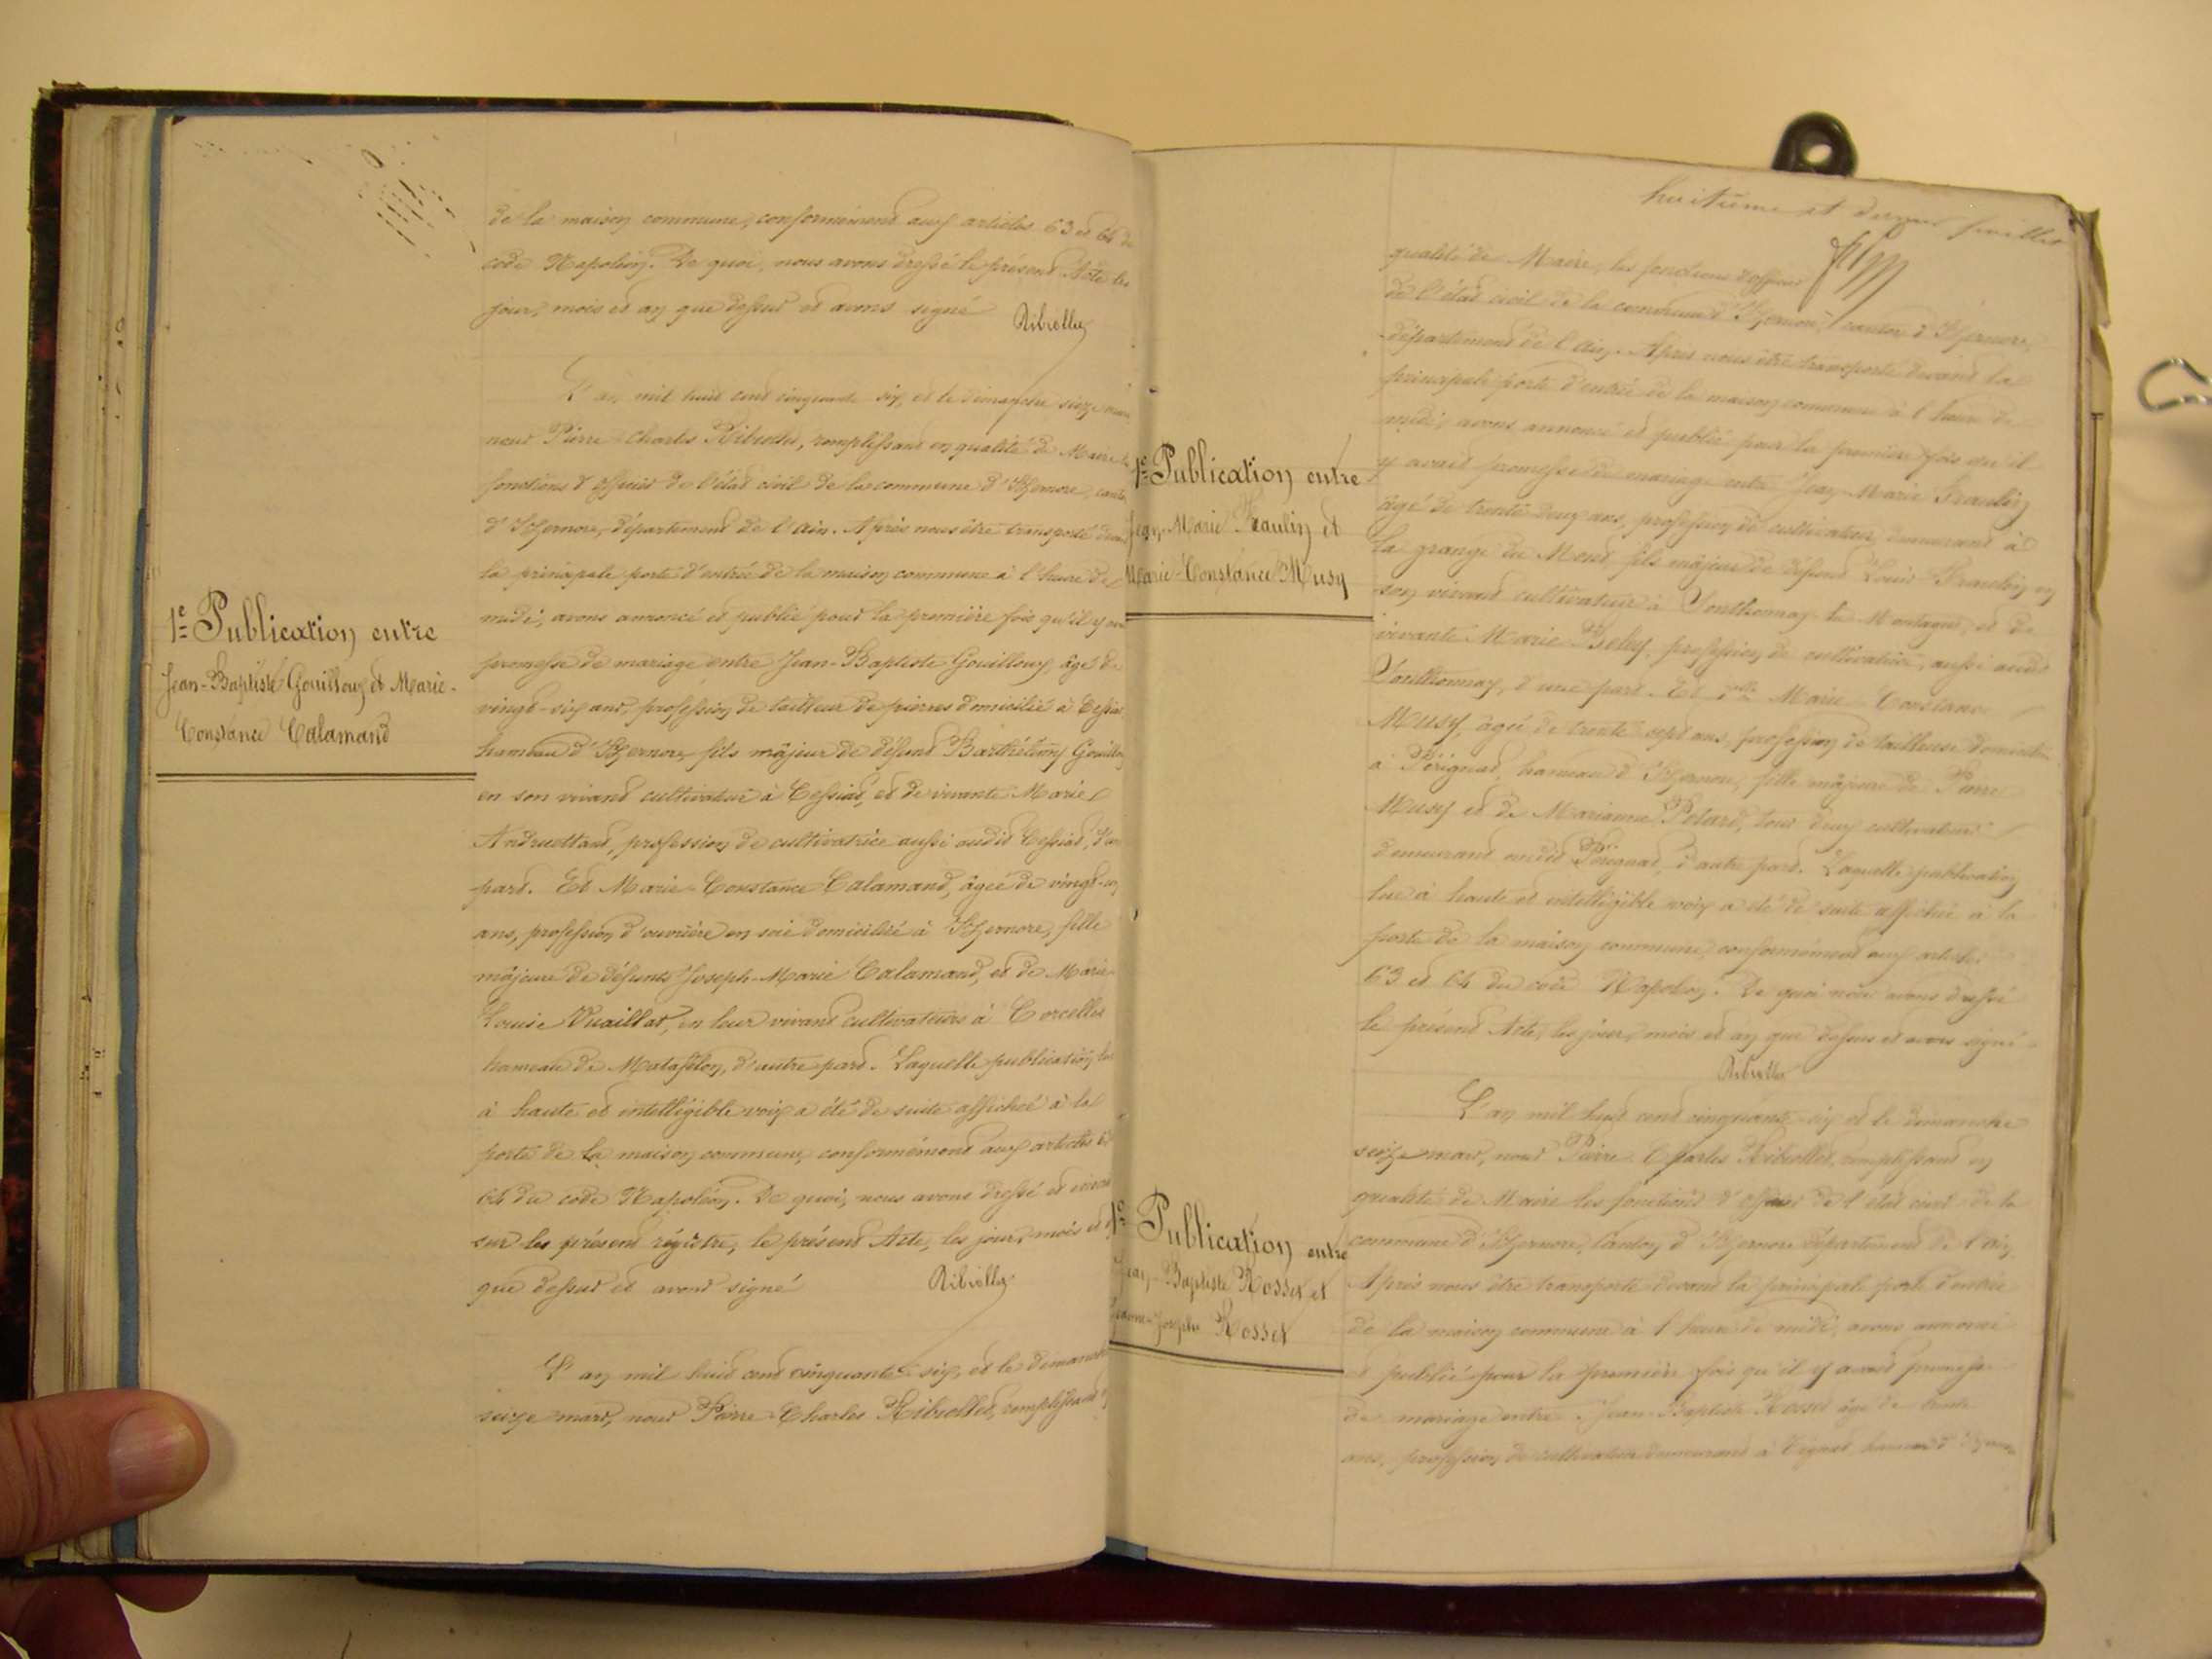 de la maison commune, conformément aux articles 63 et 64 du
code Napoléon. De quoi, nous avons dressé le présent Acte les
jour, mois et an que dessus et avons signé
Ribrollez
L'an mil huit cent cinquante six, et le dimanche seize mars
nous Pierre Charles Ribrollet, remplissant en qualité de Maire les
fonctions d'officier de l'état civil de la commune d'Izernore, canton
d'Izernore, département de l'ain. Après nous être transporté devant
la principale porte d'entrée de la maison commune à l'heure de
midi, avons annoncé et publié pour la première fois qu'il y avait
promesse de mariage entre Jean-Baptiste Gouilloux, âgé de
vingt-six ans, profession de tailleur de pierres domicilié à Cessiat
hameau d'Izernore, fils majeur de défunt Barthélemy Gouilloux
en son vivant cultivateur à Cessiat, et de vivante Marie
Andruettant, profession de cultivatrice aussi audit Cessiat, d'une
part. Et Marie-Constance Calamand, âgée de vingt-un
ans, profession d'ouvrière en soie domiciliée à Izernore, fille
majeure de défunts Joseph-Marie Calamand, et de Marie
Louise Vuaillat, en leur vivant cultivateurs à Corcelles
hameau de Matafelon, d'autre part. Laquelle publication, lue
à haute et intelligible voix a été de suite affichée à la
porte de la maison commune, conformément aux articles 63
64 du code Napoléon. De quoi, nous avons dressé et inscrit
sur les présent régistre, le présent Acte, les jour, mois et an
que dessus et avons signé
Ribrollez
L'an mil huit cent cinquante six, et le dimanche
seize mars, nous Pierre Charles Ribrollet, remplissant en
1e Publication entre
Jean-Baptiste Gouilloux et Marie-
Constance Calamand
huitième et dernier feuillet
qualité de Maire, les fonctions d'officier
de l'état civil de la commune d'Izernore, canton d'Izernore,
département de l'ain. Après nous être transporté devant la
principale porte d'entrée de la maison commune à l'heure de
midi, avons annoncé et publié pour la première fois qu'il
y avait promesse de mariage entre Jean-Marie Fraulin
âgé de trente deux ans, profession de cultivateur, demeurant à
la grange du Mont, fils majeur de défunt Louis Fraulin en
son vivant cultivateur à Sonthonnay la Montagne, et de
vivante Marie profession de cultivatrice, aussi audit
Sonthonnay, d'une part. Et Marie Constance
Musy, âgée de trente sept ans, profession de tailleuse domiciliée
à Pérignat, hameau d'Izernore, fille majeure de Pierre
Musy et de Marianne Potard, tous deux cultivateurs
demeurant audit Pérignat, d'autre part. Laquelle publication
lue à haute et intelligible voix a été de suite affichée à la
porte de la maison commune, conformément aux articles
63 et 64 du code Napoléon. De quoi nous avons dressé
le présent Acte, les jour, mois et an que dessus et avons signé
Ribrollez
L'an mil huit cent cinquante six et le dimanche
seize mars, nous Pierre Charles Ribrollet, remplissant en
qualité de Maire les fonctions d'officier de l'état civil de la
commune d'Izernore, canton d'Izernore département de l'ain,
Après nous être transporté devant la principale porte d'entrée
de la maison commune à l'heure de midi, avons annoncé
et publié pour la première fois qu'il y avait promesse
de mariage entre Jean-Baptiste Rosset âgé de trente
ans, profession de cultivateur demeurant à hameau d'Izernore
1e Publication entre
Jean-Marie Fraulin et
Marie-Constance Musy
1e Publication entre
Jean-Baptiste Rosset et
Jeanne-Josephe Rosset